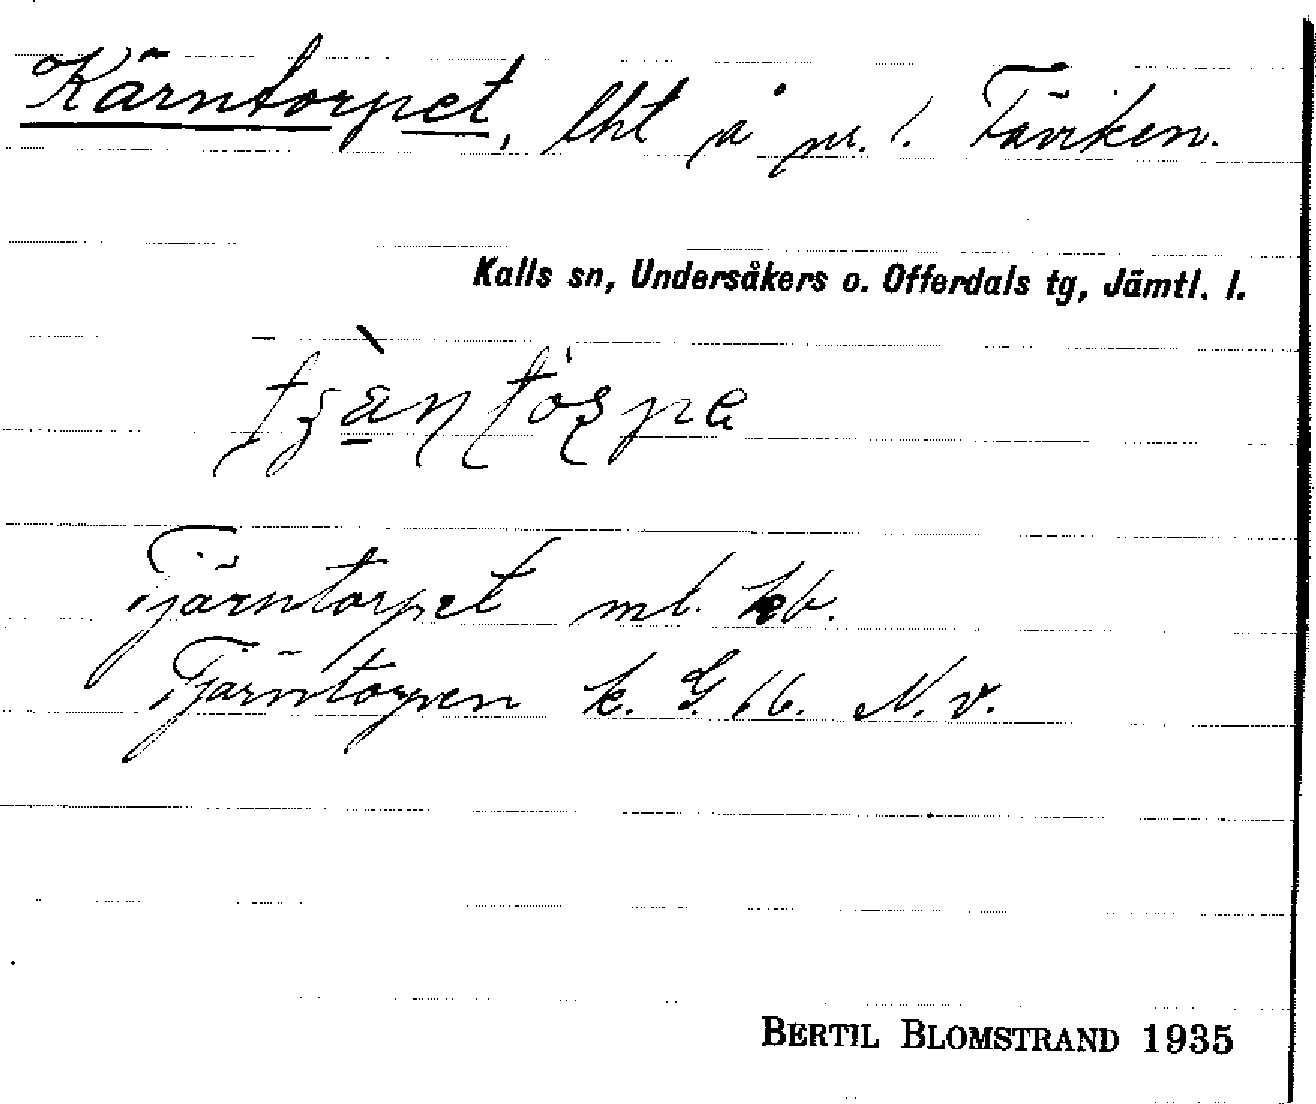 Kärntorpet, lht å nr. 1. Fäviken.
Kalls sn, Undersåkers o. Offerdals tg, Jämtl. l.
Tjärntorpet ml. kb.
Tjärntorpen k. G. 16. N. v.
BERTIL BLOMSTRAND 1935